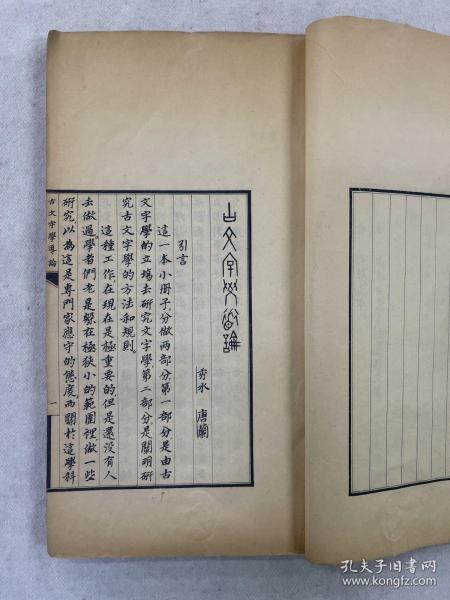 古文字學導論
秀水 唐蘭
引言
這一本小册子分做兩部分，第一部分是由古
文字學的立場去研究文字學，第二部分，是闡明研
究古文字學的方法和規則。
這種工作在現在是極重要的，但是還没有人
去做過，學者們老是躲在極狹小的範圍裡做一些
研究，以為這是專門家應守的態度，而關於這學科
古文字學導論
一
孔夫子旧书网
www.kongfz.com